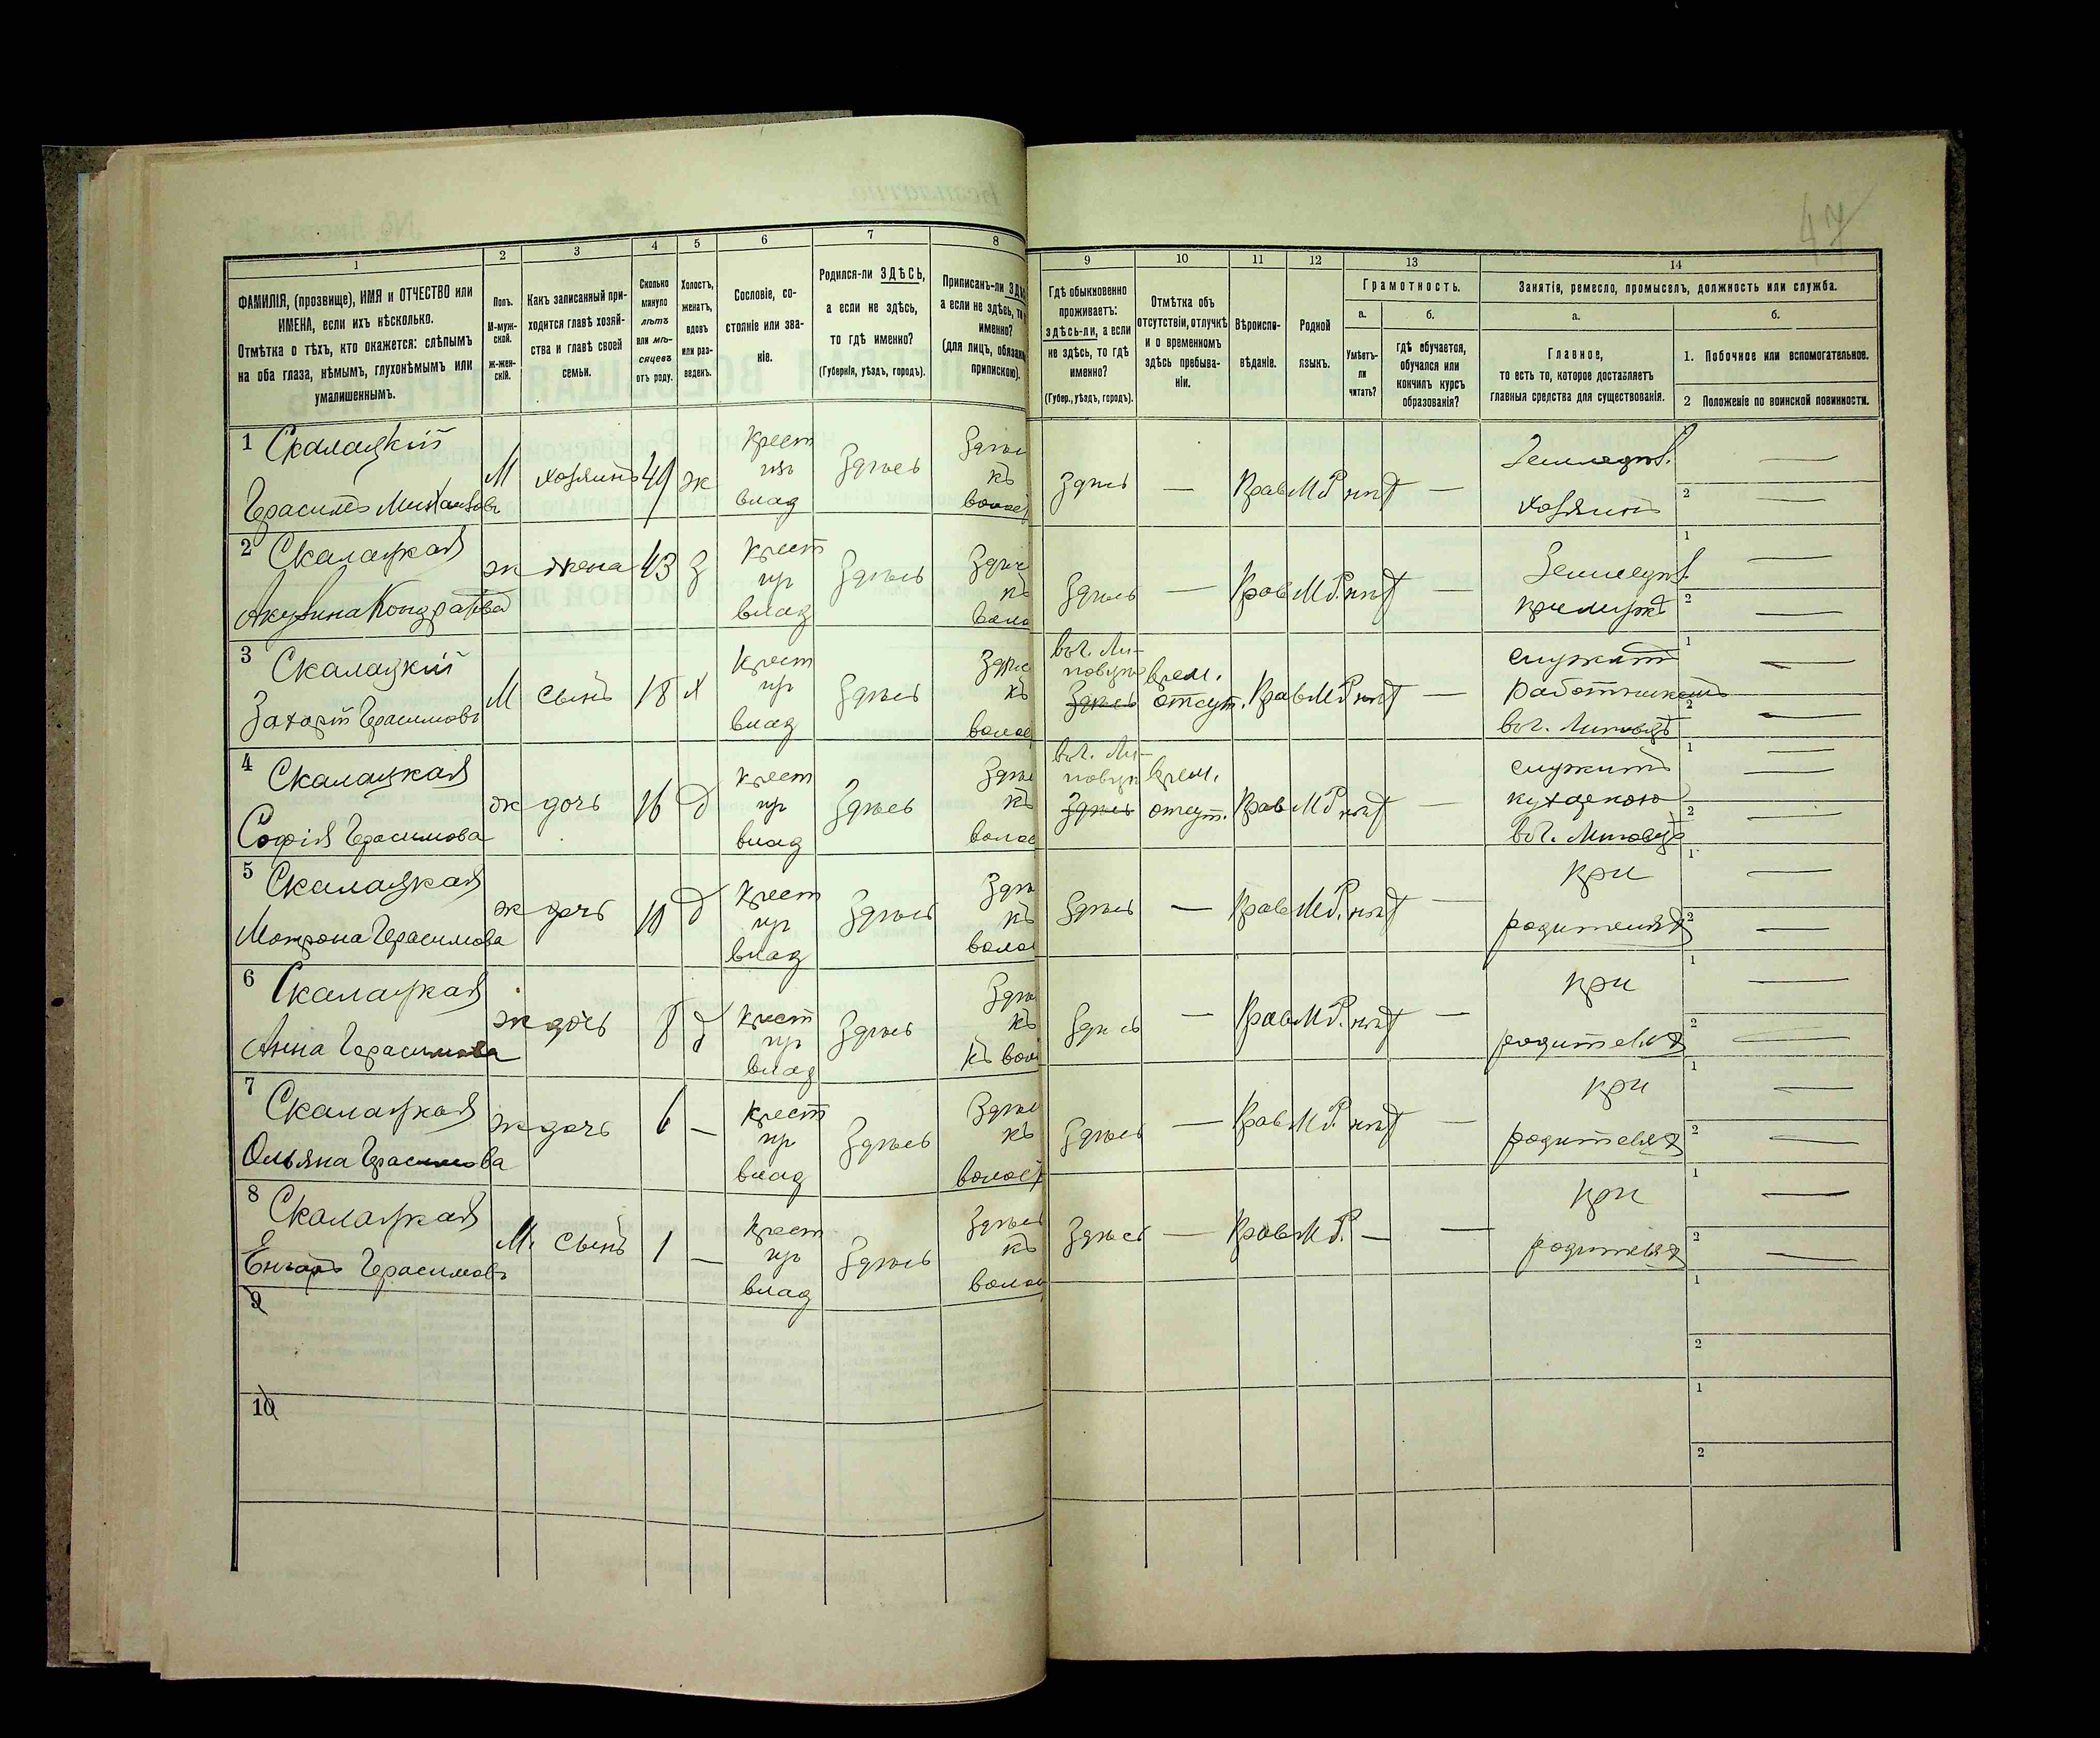 47
1
ФАМИЛІЯ, (прозвище), ИМЯ и ОТЧЕСТВО или
ИМЕНА, если ихъ нѣсколько.
Отмѣтка о тѣхъ, кто окажется: слѣпымъ
на оба глаза, нѣмымъ, глухонѣмымъ или
умалишеннымъ.
2
Полъ.
М-муж-
ской.
Ж-жен-
скій.
3
Какъ записанный при-
ходится главѣ хозяй-
ства и главѣ своей
семьи.
4
Сколько
минуло
лѣтъ
или мѣ-
сяцевъ
отъ роду.
5
Холостъ,
женатъ,
вдовъ
или раз-
веденъ.
6
Сословіе, со-
стояніе или зва-
ніе.
7
Родился-ли ЗДѢСЬ,
а если не здѣсь,
то гдѣ именно?
(Губернія, уѣздъ, городъ).
8
Приписанъ-ли
а если не здѣсь,
именно?
(для лицъ,
припискою).
9
Гдѣ обыкновенно
проживаетъ:
здѣсь-ли, а если
не здѣсь, то гдѣ
именно?
(Губер., уѣздъ, городъ).
10
Отмѣтка объ
отсутствіи, отлучкѣ
и о временномъ
здѣсь пребыва-
ніи.
11
Вѣроиспо-
вѣданіе.
12
Родной
языкъ.
13
Грамотность.
а.
Умѣетъ-
ли
читать?
б.
гдѣ обучается,
обучался или
кончилъ курсъ
образованія?
14
Занятія, ремесло, промыселъ, должность или служба.
а.
Главное,
то есть то, которое доставляетъ
главныя средства для существованія.
б.
1. Побочное или вспомогательное.
2 Положеніе по воинской повинности.
1 Скалацкій
Герасимъ Михайловъ
М хозяинъ 49 ж
Крест
влад
Здѣсь
къ
Здѣсь — Прав М.Р. нѣт —
хозяинъ
2 Скалацкая
Акулина Кондратова
ж жена 43 З
Крест
пр
влад
Здѣсь
къ
Здѣсь — Прав М.Р. нѣт —
3 Скалацкій
Захарій Герасимовъ
М сынъ 18 х
Крест
пр
влад
Здѣсь
къ
Здѣсь
врем.
отсут. Прав М.Р. нѣт —
служитъ
работникомъ
4 Скалацкая
Софія Герасимова
ж дочь 16 д
Крест
пр
влад
Здѣсь
къ
Здѣсь
врем.
отсут. Прав М.Р. нѣт —
служитъ
кухаркою
5 Скалацкая
Мотрона Герасимова
ж дочь 10 д
Крест
пр
влад
Здѣсь
къ
Здѣсь — Прав М.Р. нѣт —
при
родителях
6 Скалацкая
Анна Герасимова
ж дочь 8 д
Крест
пр
влад
Здѣсь
къ
Здѣсь — Прав М.Р. нѣт —
при
родителях
7 Скалацкая
Ольяна Герасимова
ж дочь 6 —
Крест
пр
влад
Здѣсь
къ
Здѣсь — Прав М.Р. нѣт —
при
родителях
8 Скалацкая
Герасимовъ
М. сынъ 1 —
Крест
пр
влад
Здѣсь
къ
Здѣсь — Прав М.Р. — —
при
родителях
9
10